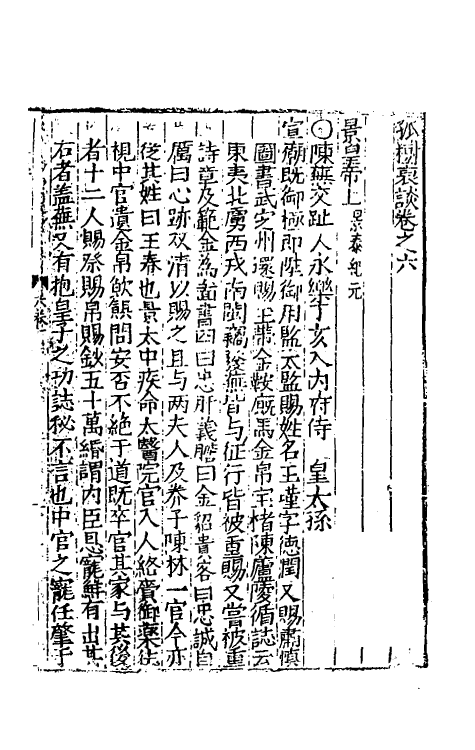 孤樹裒談卷之六
景皇帝上 景泰紀元
○陳蕪交趾人永樂丁亥入內府侍　皇太孫
宣廟既御極即陞御用監太監賜姓名王瑾字德潤又賜肅慎
圖書武定州還賜王帶金鞍廐馬金帛宝楮陳廬陵循誌云
東夷北虜西戎南閩 皆与征行皆被重賜又嘗被重
詩章及範金為啚書四曰忠肝義膽曰金貂貴客曰忠誠自
厲曰心跡双清以賜之且与两夫人及养子陳林一官今亦
從其姓曰王春也景太中疾命太醫院官入人絡賫御藥徃
視中官遺金帛飲饌問安否不絕于道既卒官其家与其後
者十二人賜祭賜帛賜鈔五十萬緡謂內臣恩寵鮮有出其
右者盖蕪又有抱皇子之功誌秘不言也中官之寵任肇于
六卷